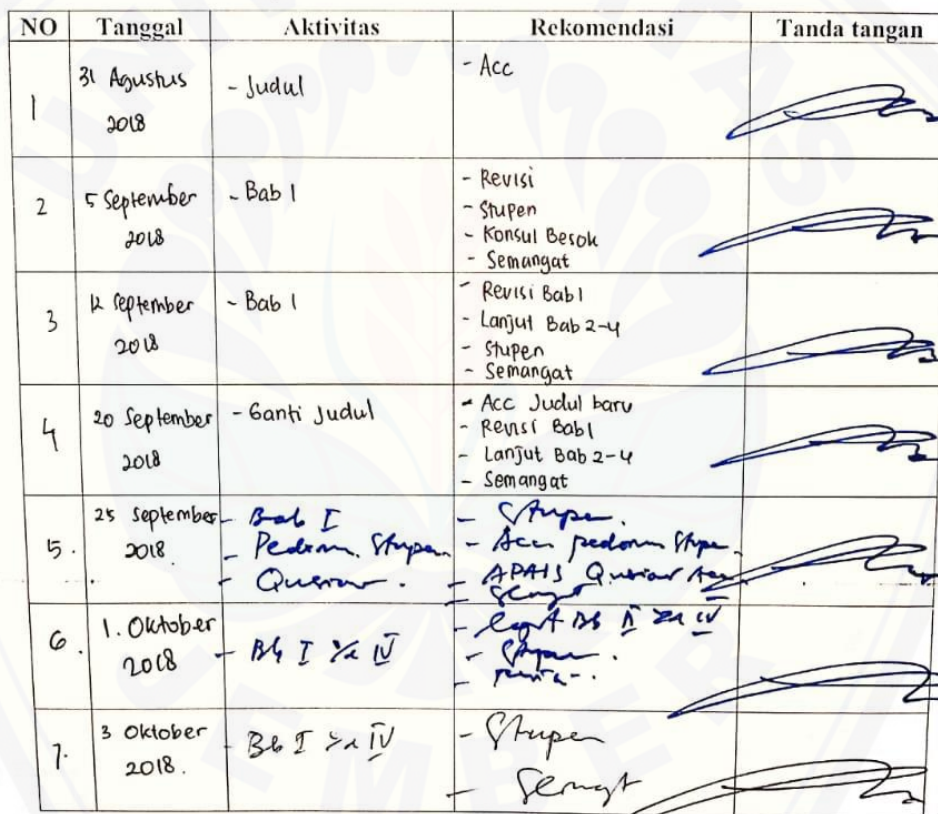 NO Tanggal Aktivitas Rekomendasi Tanda tangan
1 31 Agustus 2018 - Judul - Acc
2 5 September 2018 - Bab 1 - Revisi
- Stupen
- Konsul Besok
- Semangat
3 12 September 2018 - Bab 1 - Revisi Bab 1
- Lanjut Bab 2-4
- Stupen
- Semangat
4 20 September 2018 - Ganti Judul - Acc Judul baru
- Revisi Bab 1
- Lanjut Bab 2-4
- Semangat
5. 25 September 2018. - Bab I - Stupen.
- Pedom. Stupen - Acc pedom Stupen
- APAIS
6. 1. Oktober 2018 - Bb I IV
- Stupen.
7. 3 Oktober 2018. - Bb I IV - Stupen
JEMBER